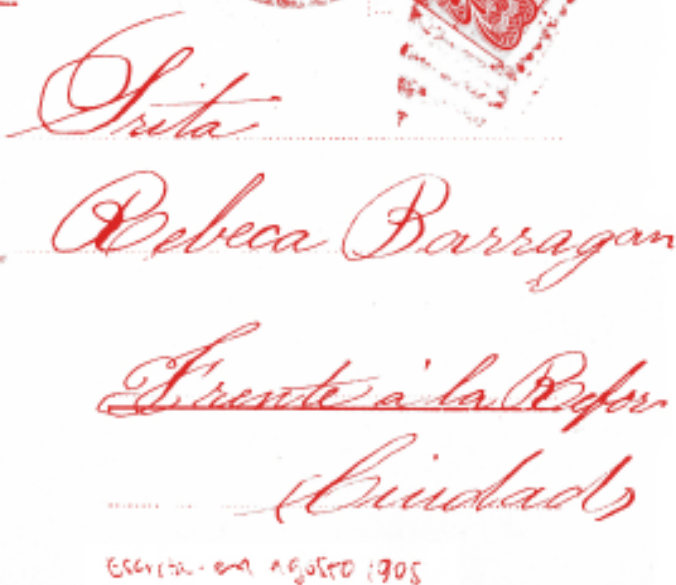 Srita
Rebeca Barragan
Frente á la Refor
Ciudad
Escrita en agosto 1905